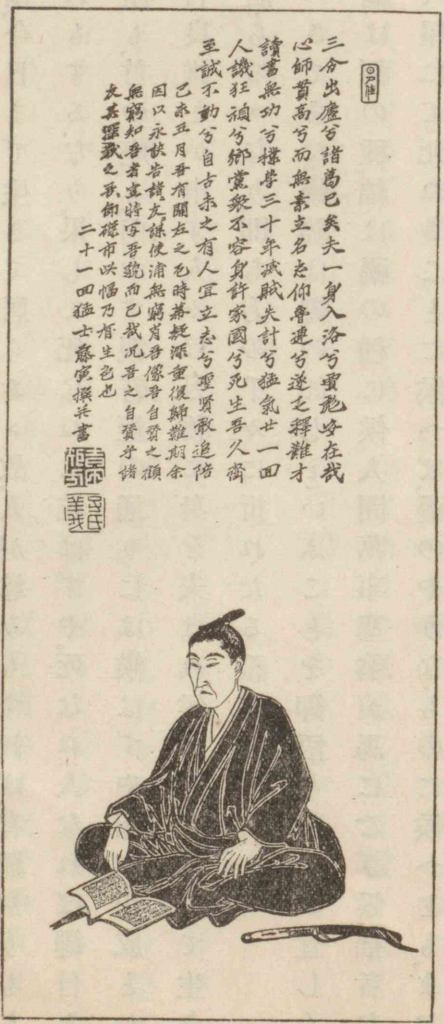 三分出廬兮諸葛已矣夫一身入洛兮賈彪安在哉
心師貫高兮而無素立名志仰魯連兮遂乏釋難才
讀書無功兮樸学三十年滅賊失計兮猛氣廿一回
人譏狂頑兮郷黨衆不容身許家國兮死生吾久齊
至誠不動兮自古未之有人宜立志兮聖賢敢追陪
己未五月吾有關左之厄時幕疑深重復歸難期余
因以永訣告諸友謀使浦無窮肖吾像吾自賛之顧
無窮知吾者豈特写吾貌而已哉況吾之自賛乎諸
友其深蔵之吾即磔市此幅乃有生色也
二十一回猛士藤寅撰并書